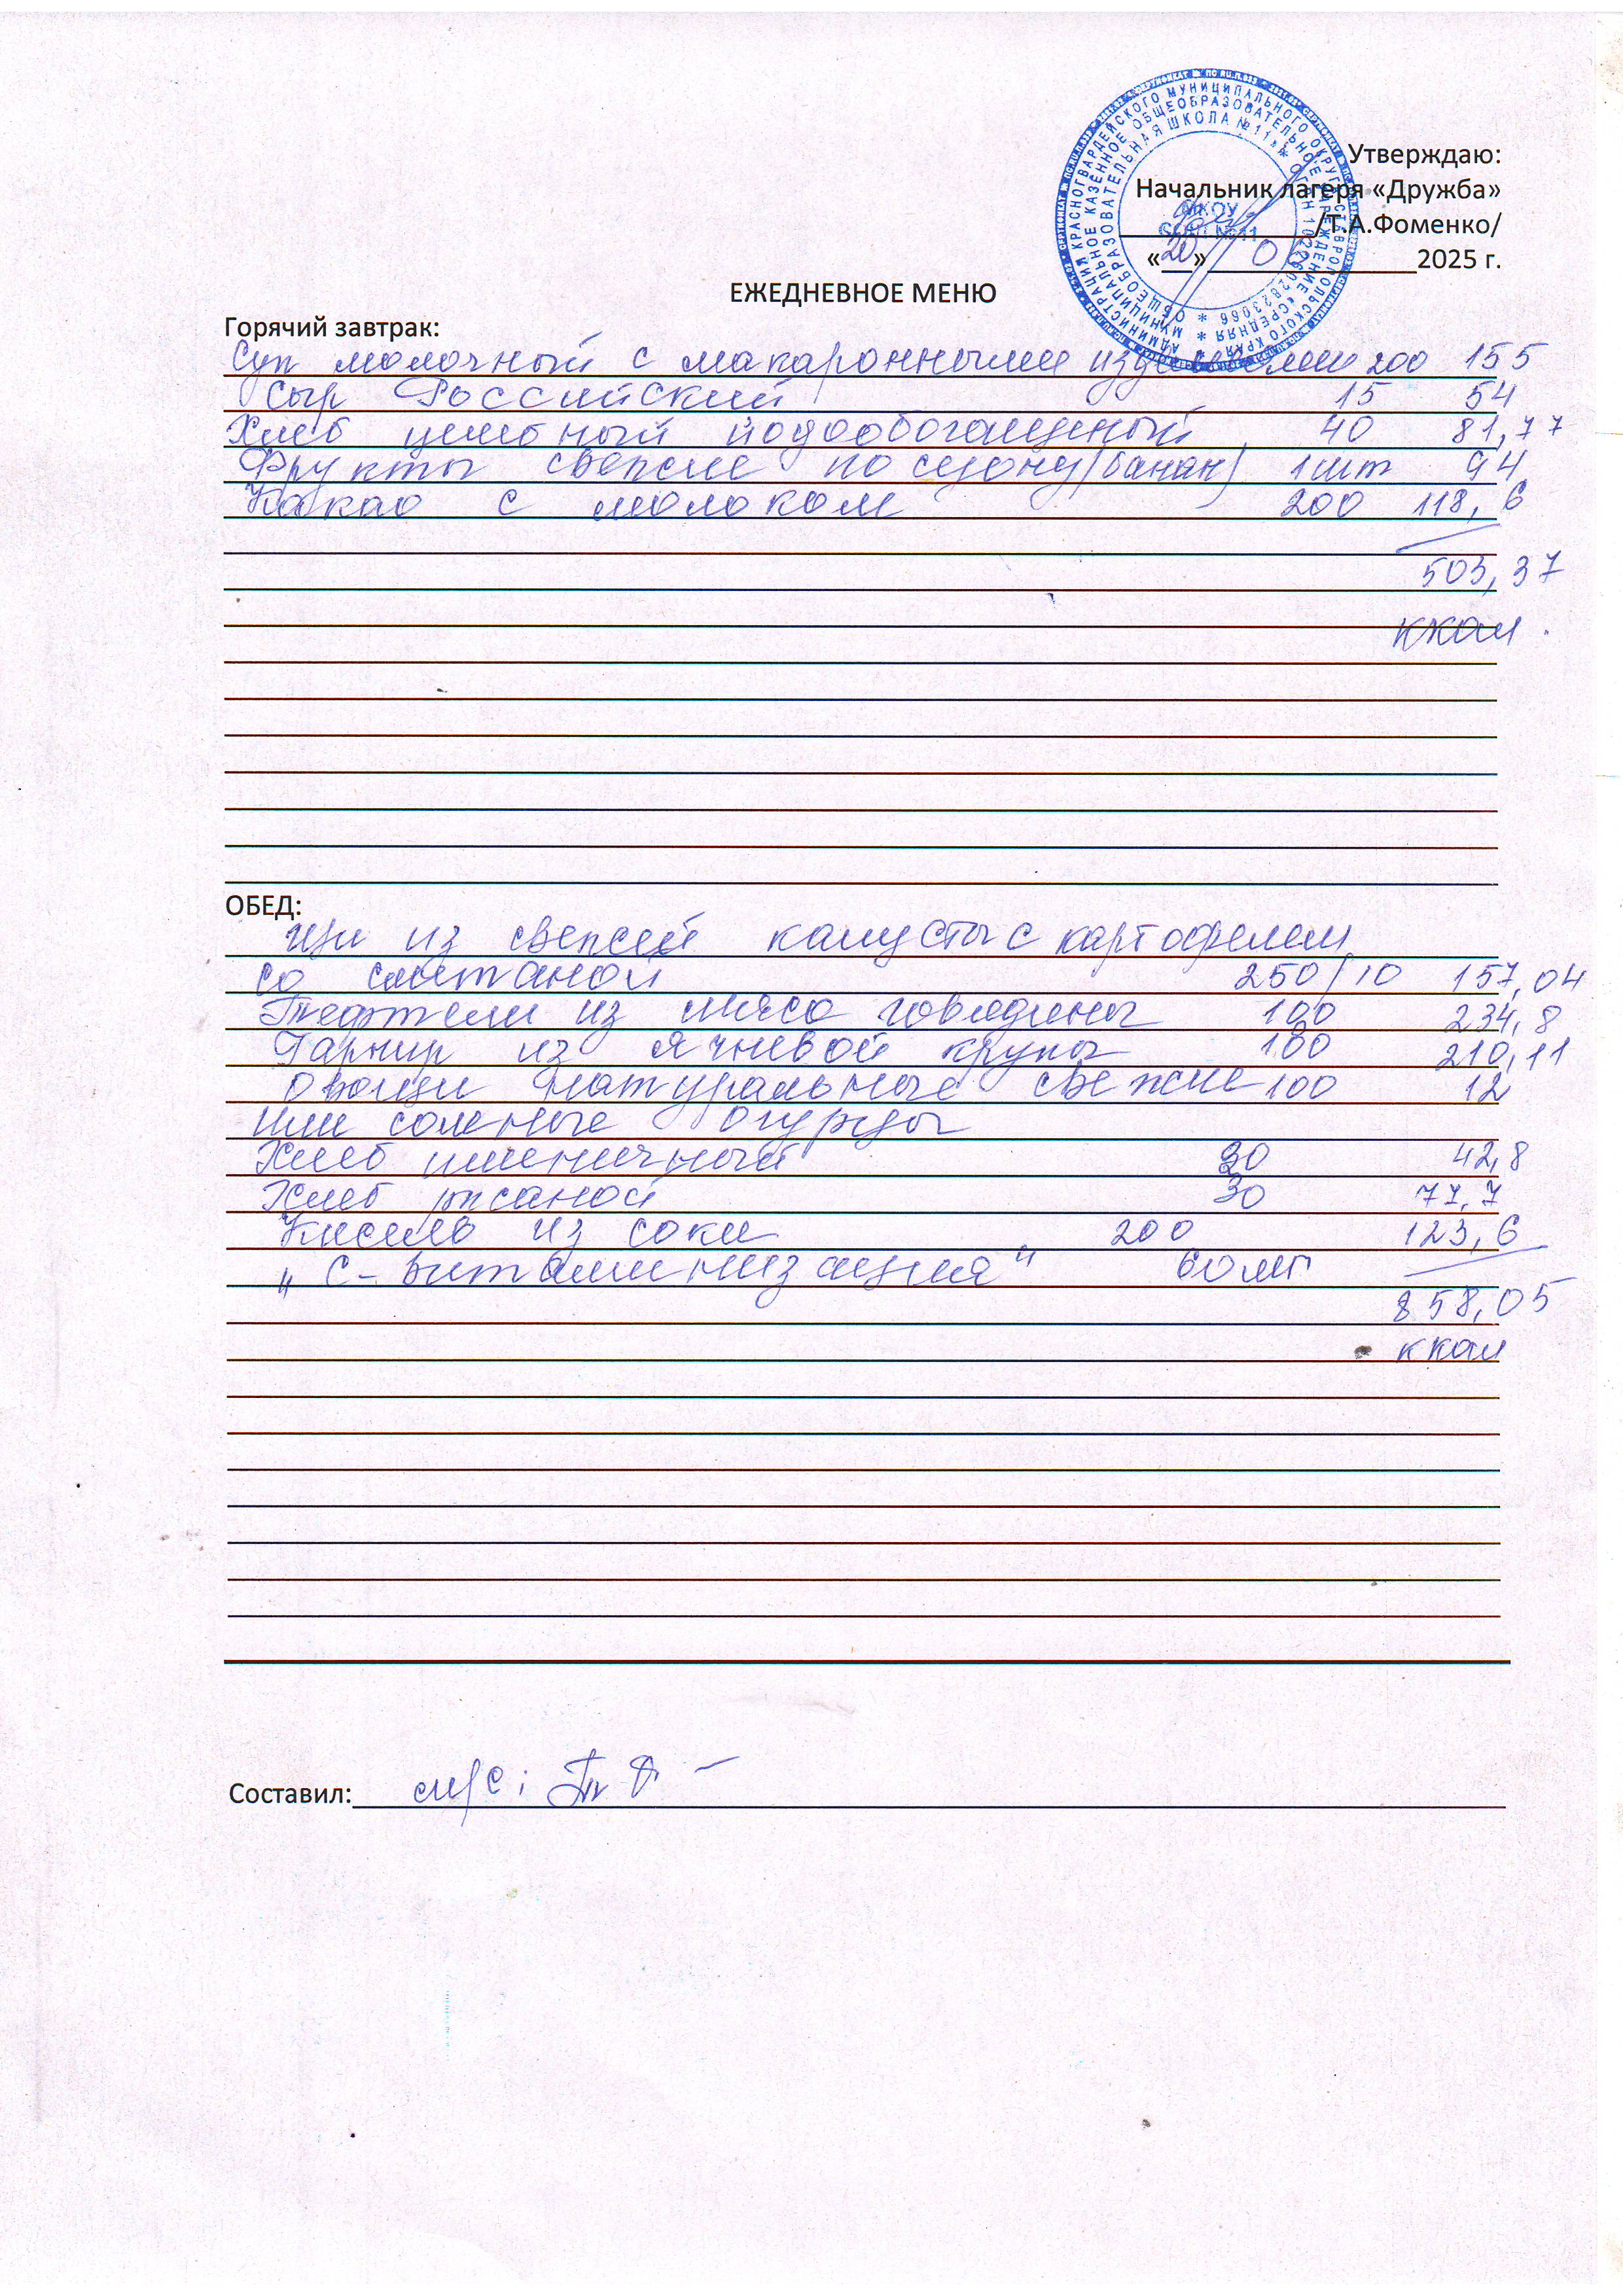 Утверждаю:
Начальник лагеря «Дружба»
/Т.А.Фоменко/
«20» 06 2025 г.
МКОУ
СОШ №11
ЕЖЕДНЕВНОЕ МЕНЮ
Горячий завтрак:
Суп молочный с макаронными изделиями 200 155
Сыр Российский 15 54
Хлеб целебный йодообогащеный 40 81,77
Фрукты свежие по сезону (банан) 1 шт 94
Какао с молоком 200 118,6
503,37
ккал.
ОБЕД:
Щи из свежей капусты с картофелем
со сметаной 250/10 157,04
Тефтели из мяса говядины 100 234,8
Гарнир из ячневой крупы 100 210,11
Овощи натуральные свежие 100 12
или соленые огурцы
Хлеб пшеничный 30 42,8
Хлеб ржаной 30 77,7
Кисель из соки 200 123,6
"С-витаминизация" 60 мг
858,05
ккал
Составил: м/с: